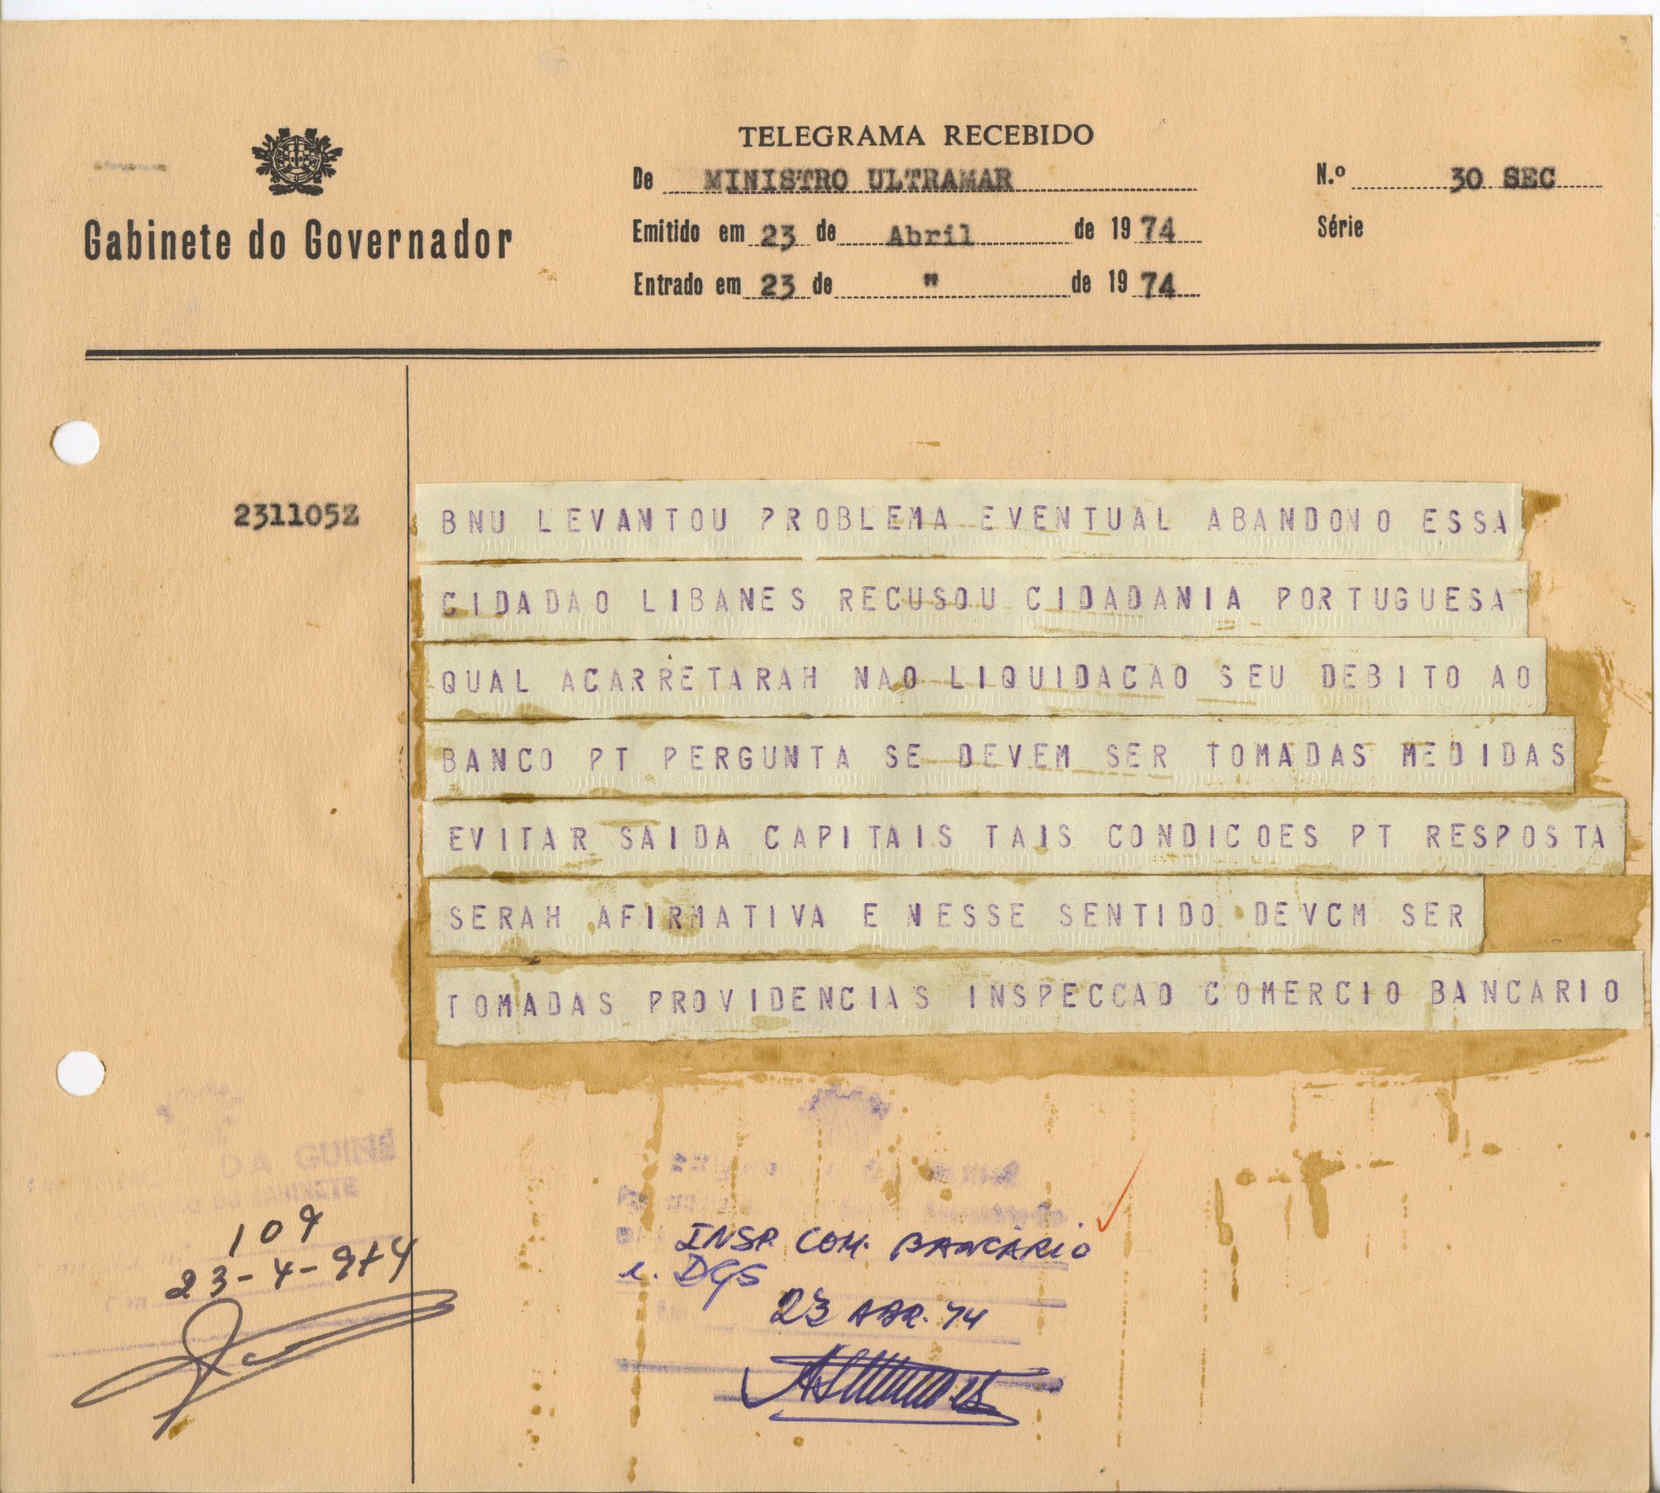 TELEGRAMA RECEBIDO
De MINISTRO ULTRAMAR
N.º 30 SEC
Gabinete do Governador
Emitido em 23 de Abril de 1974
Série
Entrado em 23 de " de 1974
231105Z
BNU LEVANTOU PROBLEMA EVENTUAL ABANDONO ESSA
CIDADAO LIBANES RECUSOU CIDADANIA PORTUGUESA
QUAL ACARRETARAH NAO LIQUIDACAO SEU DEBITO AO
BANCO PT PERGUNTA SE DEVEM SER TOMADAS MEDIDAS
EVITAR SAIDA CAPITAIS TAIS CONDICOES PT RESPOSTA
SERAH AFIRMATIVA E NESSE SENTIDO DEVCM SER
TOMADAS PROVIDENCIAS INSPECCAO COMERCIO BANCARIO
DA GUINÉ
GABINETE
109
23-4-974
INSP. COM. BANCÁRIO
e. DGS
23 ABR. 74